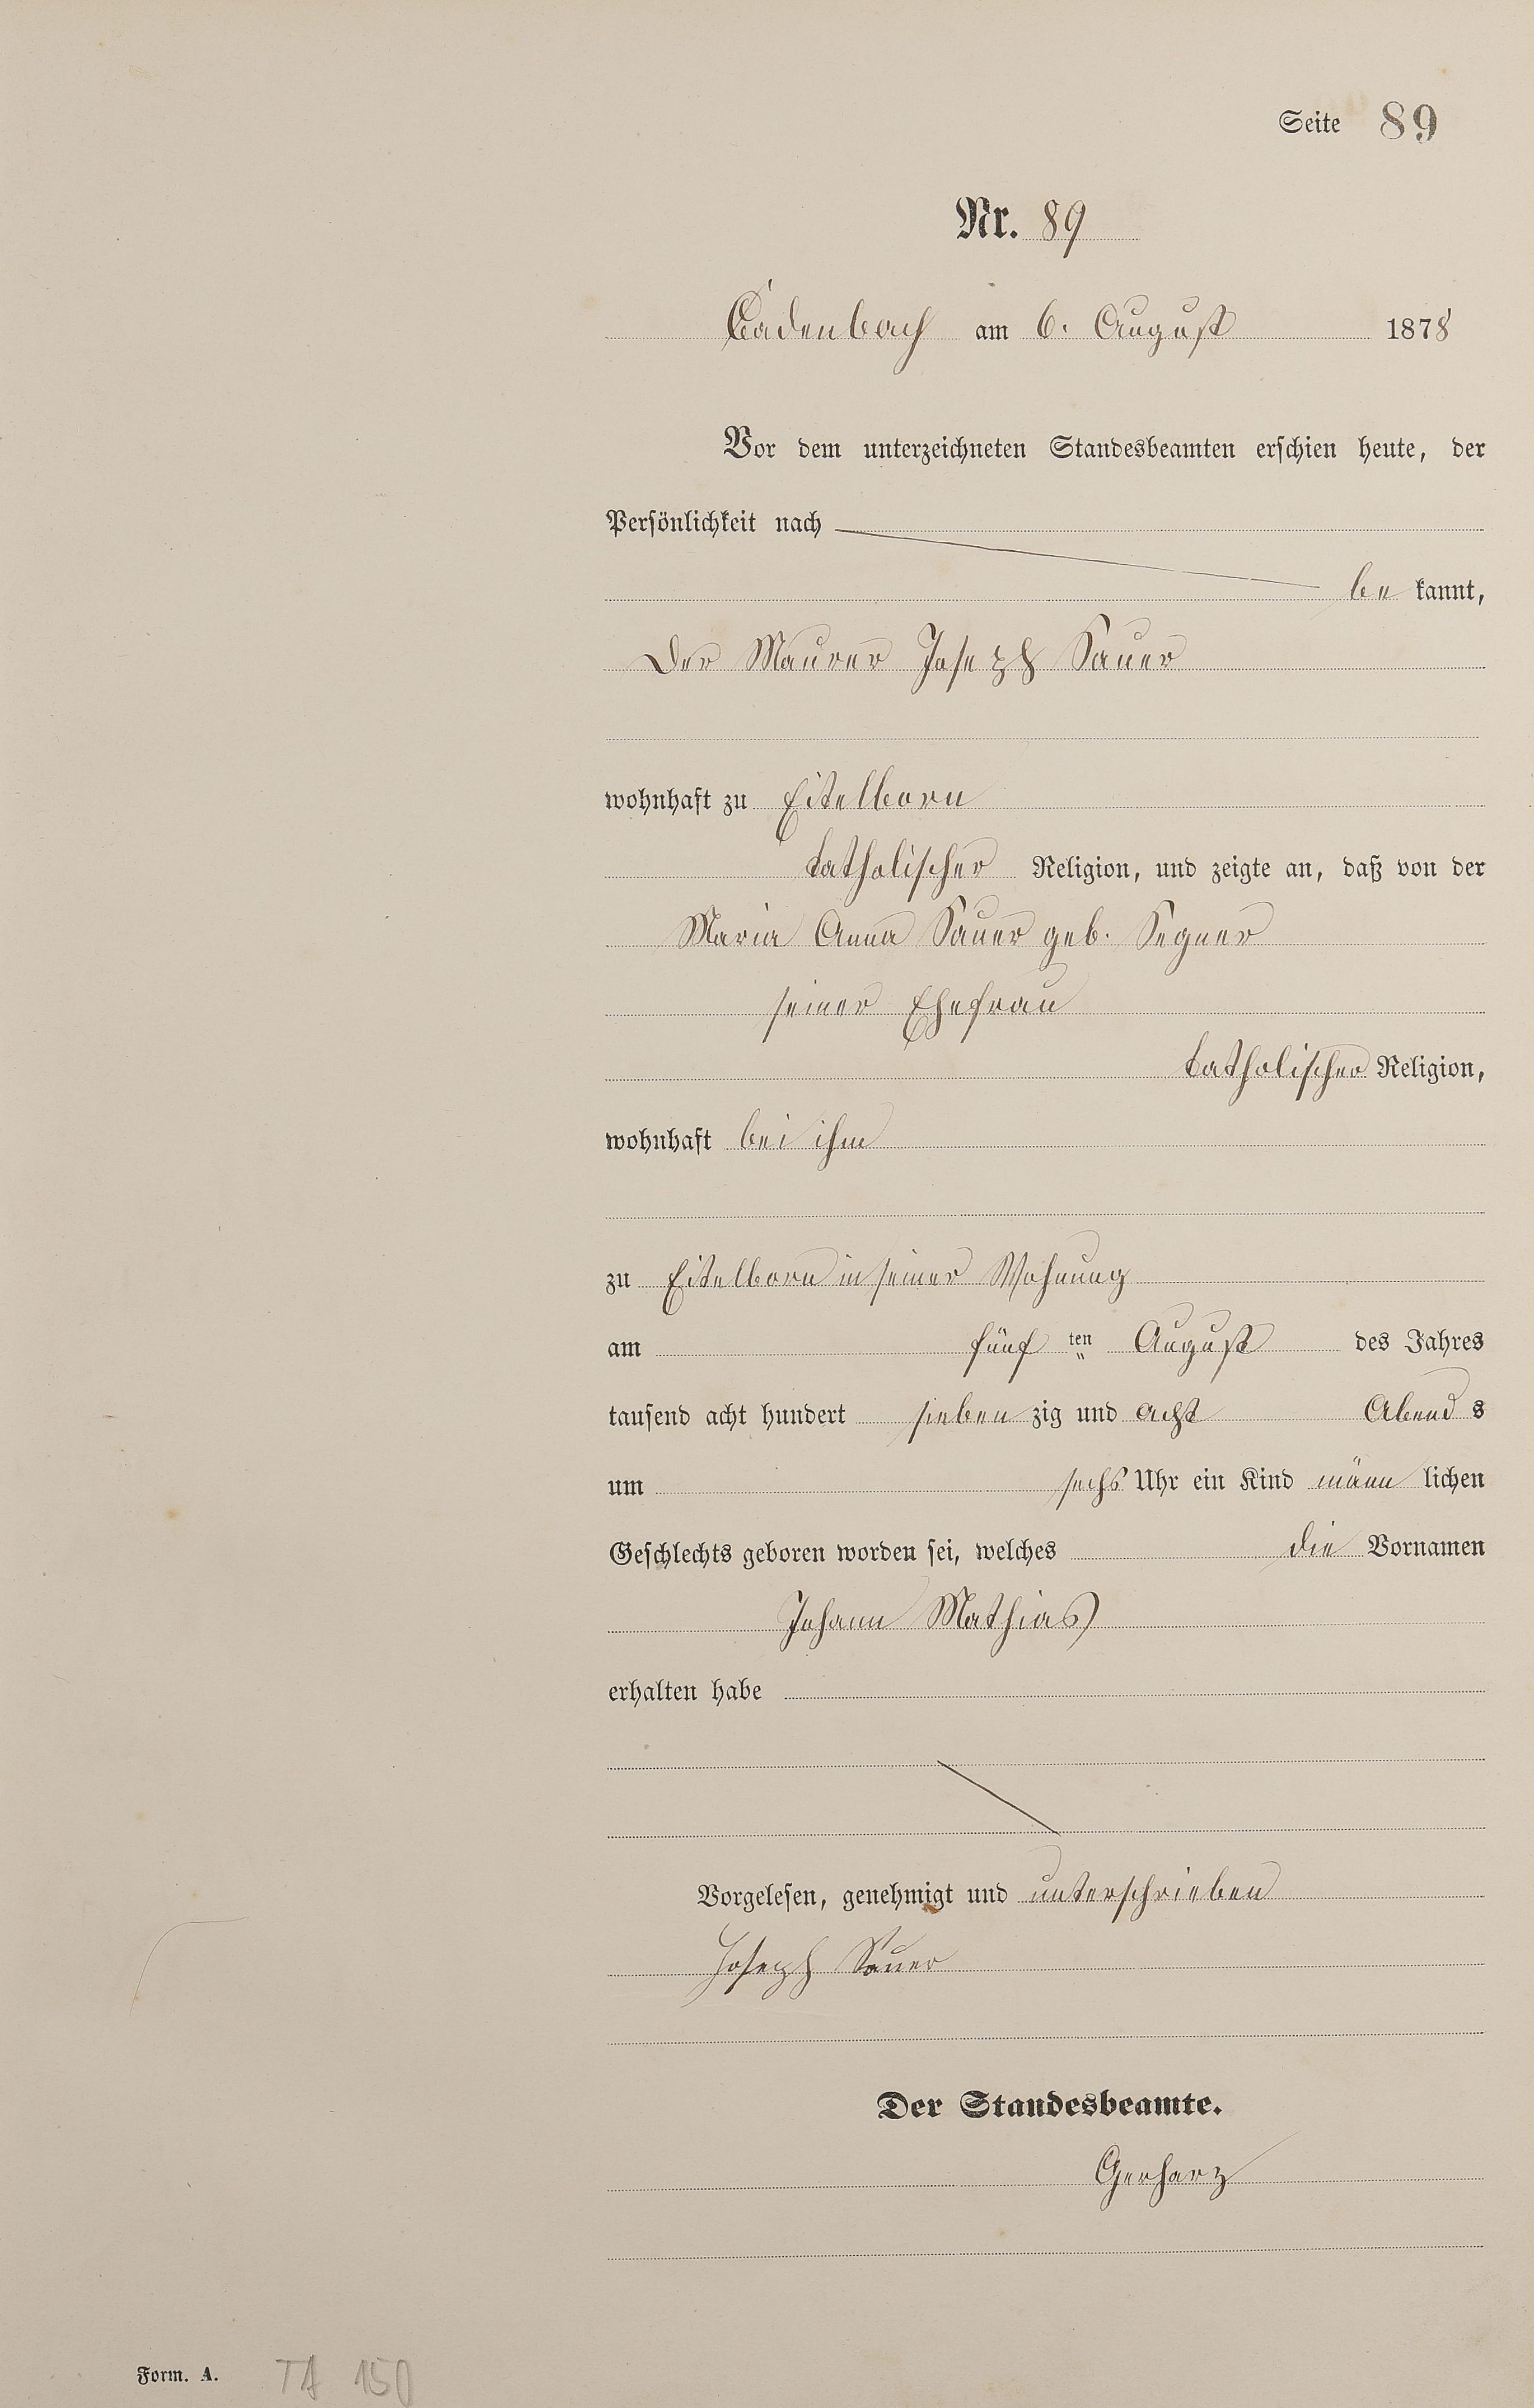 Seite 89
Nr. 89
Cadenbach am 6. August 1878
Vor dem unterzeichneten Standesbeamten erschien heute, der
Persönlichkeit nach
be kannt,
der Maurer Joseph Sauer
wohnhaft zu Eitelborn
katholischer Religion, und zeigte an, daß von der
Maria Anna Sauer geb. Segner
seiner Ehefrau
katholischer Religion,
wohnhaft bei ihm
zu Eitelborn in seiner Wohnung
am fünf ten August des Jahres
tausend acht hundert sieben zig und acht Abend s
um sechs Uhr ein Kind männ lichen
Geschlechts geboren worden sei, welches die Vornamen
Johann Mathias
erhalten habe
Vorgelesen, genehmigt und unterschrieben
Joseph Sauer
Der Standesbeamte.
Gerharz
Form. A. TA 150